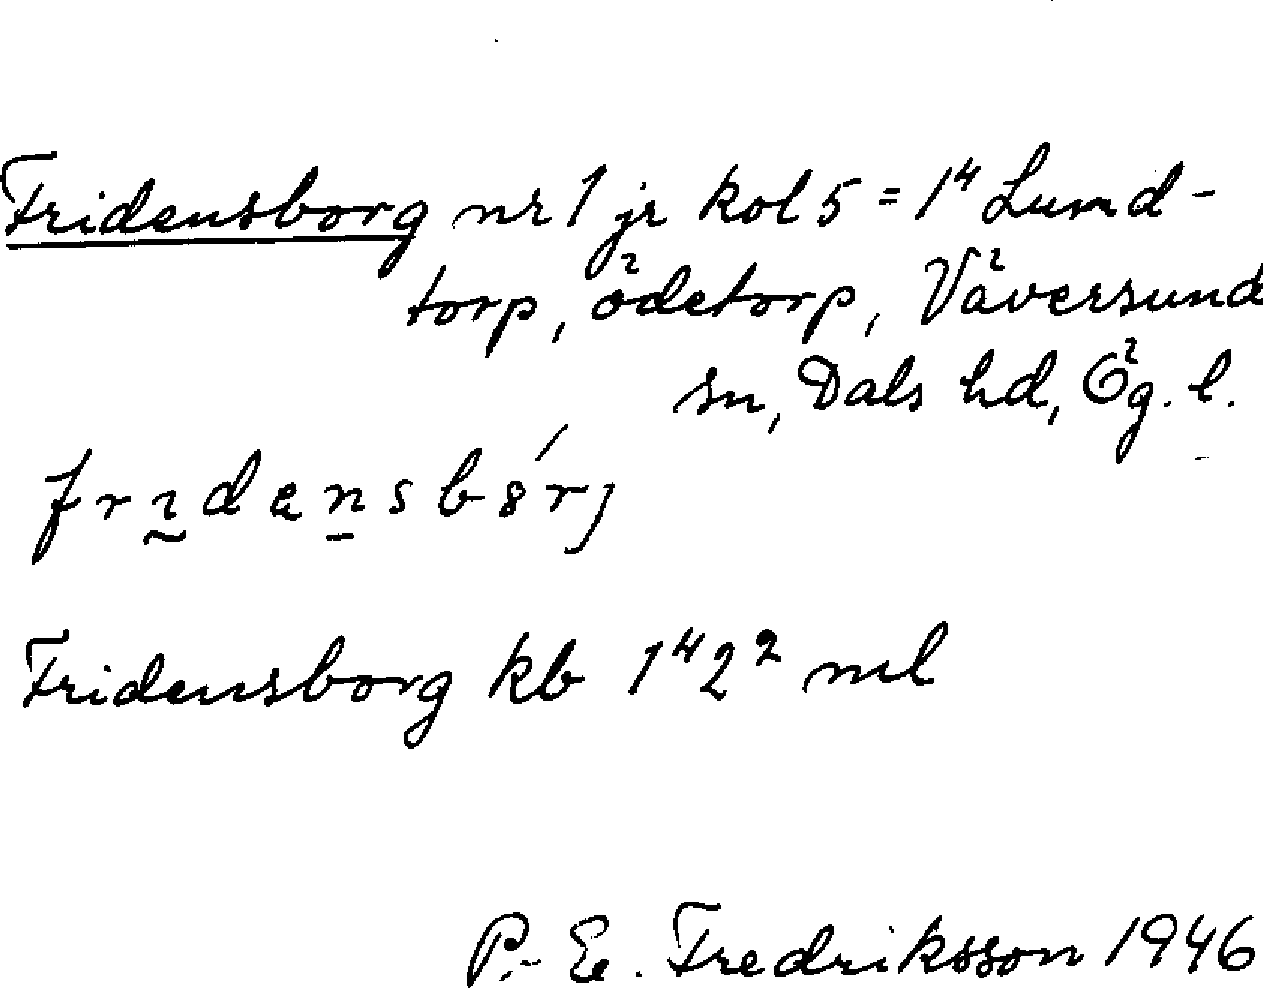 Fridensborg nr 1 jr kol 5 = 1⁴ Lund-
torp, ödetorp, Väversund
sn, Dals hd, Ög. l.
Fridensborg kb 1⁴2² ml
P.-E. Fredriksson 1946